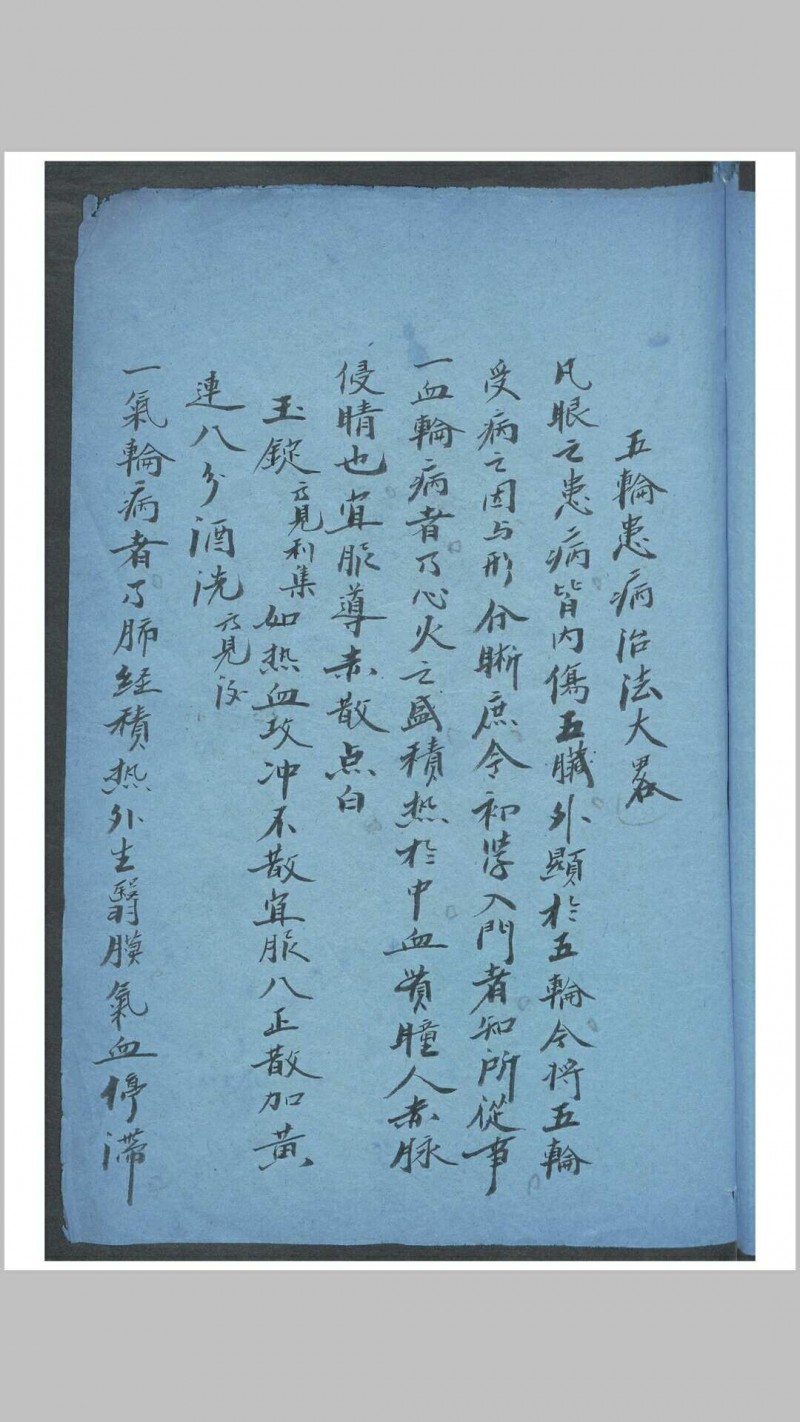 五輪患病治法大畧
凡眼之患病皆内傷五臟外顯於五輪今将五輪
受病之因与形分晰庶令初学入門者知所從事
一血輪病者乃心火之盛積热於中血貫瞳人赤脉
侵睛也宜服導赤散点白
玉錠方見利集如热血攻冲不散宜服八正散加黄
連八分酒洗方見後
一氣輪病者乃肺经積热外生翳膜氣血停滯